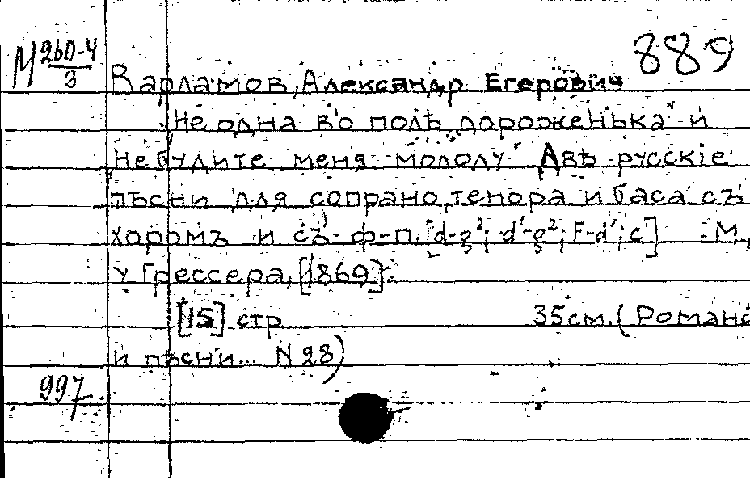 М 260-4/3
889
Варламов, Александр Егерович
"Не одна во полѣ дороженька" и
"Не будите меня молоду" Двѣ русскiе
пѣсни для сопрано, тенора и баса съ
хоромъ и съ ф-п. [d-g²; d'-g²; F-d'; c] :М.,
у Грессера, [1869].
[15] стр 35см. (Романс
и пѣсни... N 28)
997